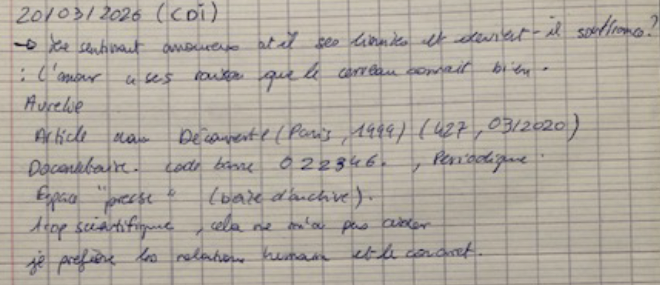 20/03/2026 (CDI)
→ le sentiment amoureux at il ses limites et devient-il souffrance?
: L'amour a ses routes que le cerveau connait bien.
Aurelie
Article dans Découverte (Paris, 1999) (427, 03/2020)
Documentaire. code barre 022346., Périodique.
Espace "presse" (boite d'archive).
trop scientifique, cela ne m'a pas aider
je préfère les relations humain et le concret.